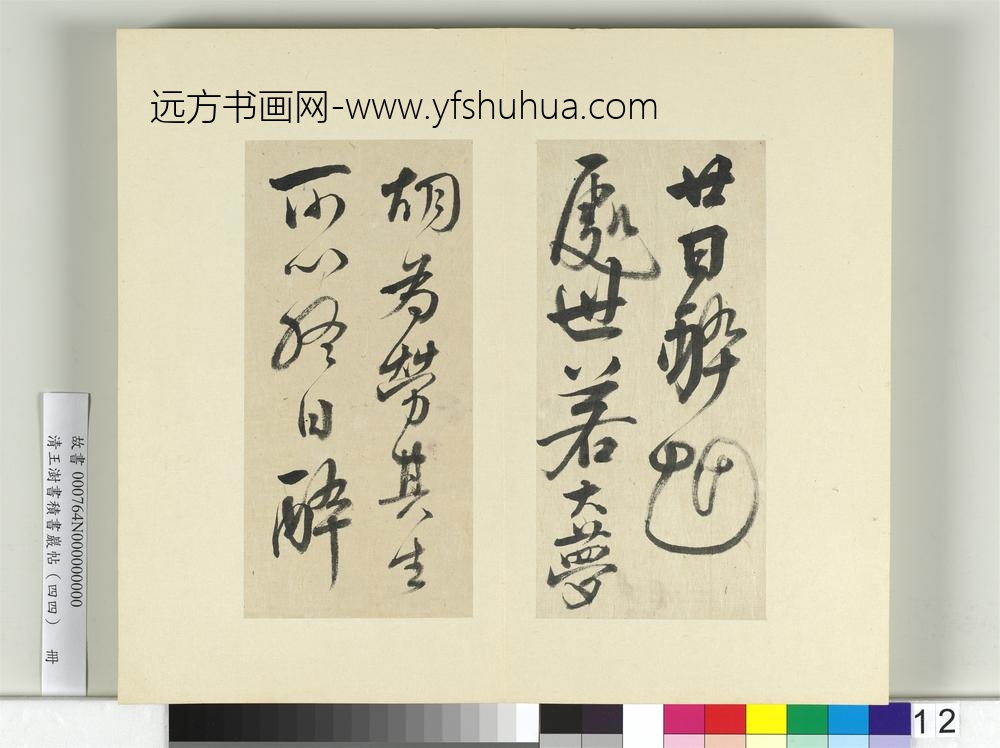 远方书画网-www.yfshuhua.com
廿日醉起
處世若大夢
胡為勞其生
所以終日醉
故書 000764N000000000
清王澍書積書巖帖（四四） 冊
12